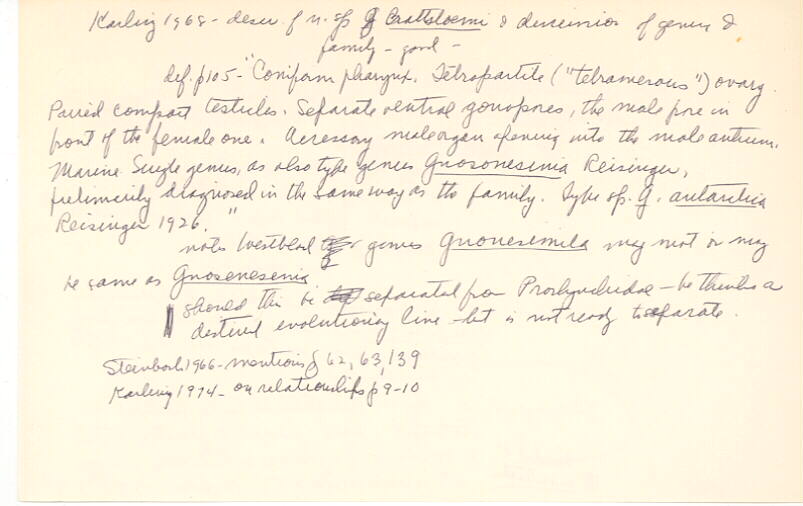 Karling 1968 - descr. of n. sp G brattstroemi & discussion of genus &
family - good -
def. p105 - "Coniform pharynx. Tetrapartite ("tetramerous") ovary.
Paired compact testicles. Separate ventral gonopores, the male pore in
front of the female one. Accessory male organ opening into the male antrum.
Marine. Single genus, as also type genus Gnosonesima Reisinger,
prelimarily diagnosed in the same way as the family. Type sp. G. antarctica
Reisinger 1926."
notes Westblad genus Gnonesimila may not or may
be same as Gnosenesenia
should this be separated from Prorhynchidae - he thinks a
destined evolutionary line - but is not ready to separate.
Steinbock 1966 - mentions p 62, 63, 139
Karling 1974 - on relationships p 9-10